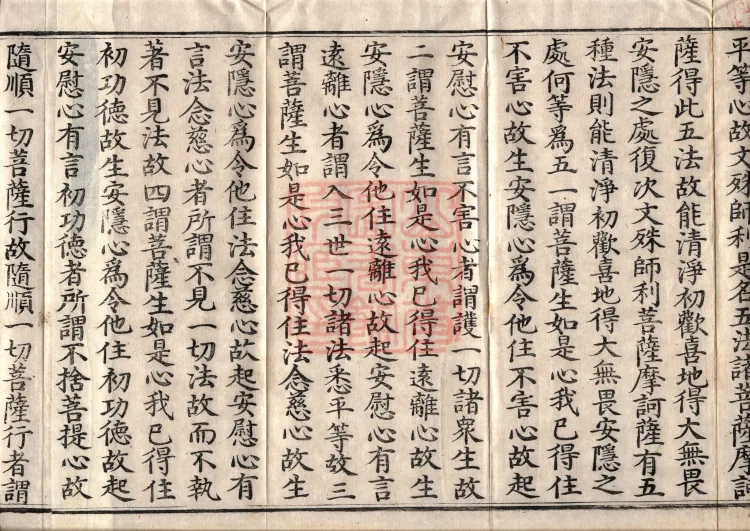 平等心故文殊師利是名五法諸菩薩摩訶
薩得此五法故能清淨初歡喜地得大無畏
安隱之處復次文殊師利菩薩摩訶薩有五
種法則能清淨初歡喜地得大無畏安隱之
處何等爲五一謂菩薩生如是心我已得住
不害心故生安隱心爲令他住不害心故起
安慰心有言不害心者謂護一切諸衆生故
二謂菩薩生如是心我已得住遠離心故生
安隱心爲令他住遠離心故起安慰心有言
遠離心者謂入三世一切諸法悉平等故三
謂菩薩生如是心我已得住法念慈心故生
安隱心爲令他住法念慈心故起安慰心有
言法念慈心者所謂不見一切法故而不執
著不見法故四謂菩薩生如是心我已得住
初功德故生安隱心爲令他住初功德故起
安慰心有言初功德者所謂不捨菩提心故
隨順一切菩薩行故隨順一切菩薩行者謂